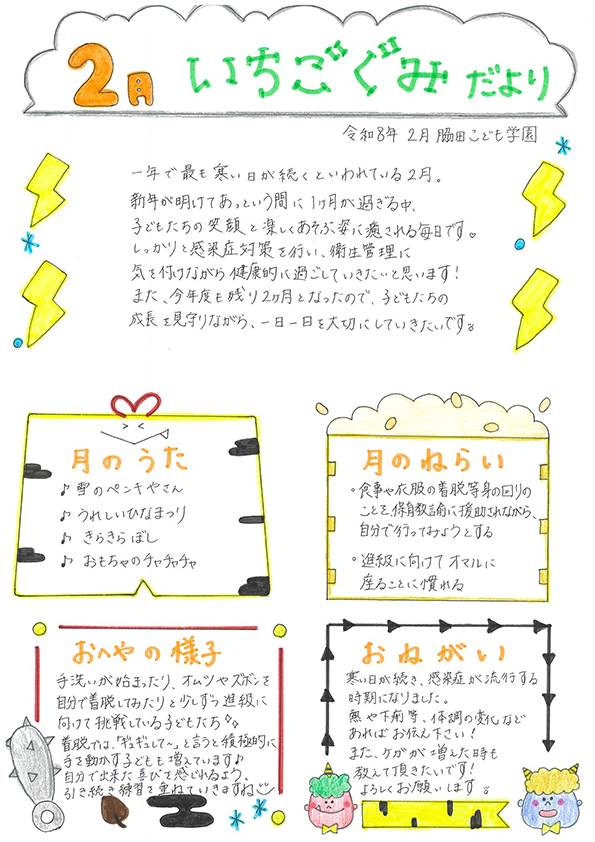 2月 いちごぐみ だより
令和8年 2月 脇田こども学園
一年で最も寒い日が続くといわれている2月。
新年が明けてあっという間に1ヶ月が過ぎる中、
子どもたちの笑顔と楽しくあそぶ姿に癒される毎日です。
しっかりと感染症対策を行い、衛生管理に
気を付けながら健康的に過ごしていきたいと思います!
また、今年度も残り2ヶ月となったので、子どもたちの
成長を見守りながら、一日一日を大切にしていきたいです。
月のうた
♪ 雪のペンキやさん
♪ うれしいひなまつり
♪ きらきらぼし
♪ おもちゃのチャチャチャ
月のねらい
・食事や衣服の着脱等身の回りの
ことを、保育教諭に援助されながら、
自分で行ってみようとする
・進級に向けてオマルに
座ることに慣れる
おへやの様子
手洗いが始まったり、オムツやズボンを
自分で着脱してみたりと少しずつ進級に
向けて挑戦している子どもたち
着脱では、「ギュギュして〜」と言うと積極的に
手を動かす子どもも増えています♪
自分で出来た喜びを感じれるよう、
引き続き練習を重ねていきますね
おねがい
寒い日が続き、感染症が流行する
時期になりました。
熱や下痢等、体調の変化など
あればお伝え下さい!
また、ケガが増えた時も
教えて頂きたいです!
よろしくお願いします。